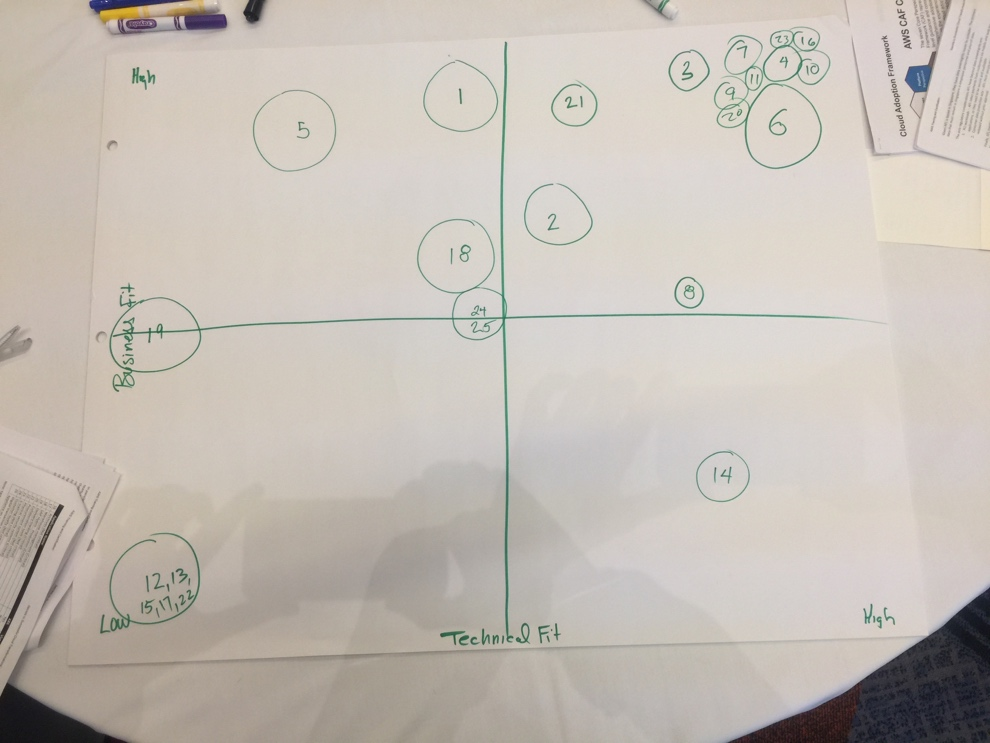 High
5
1
21
3
7
23
16
4
10
11
9
20
6
18
2
8
24
25
19
Business Fit
14
12,13,
15,17,22
Low
Technical Fit
High
Cloud Adoption Framework
AWS CAF